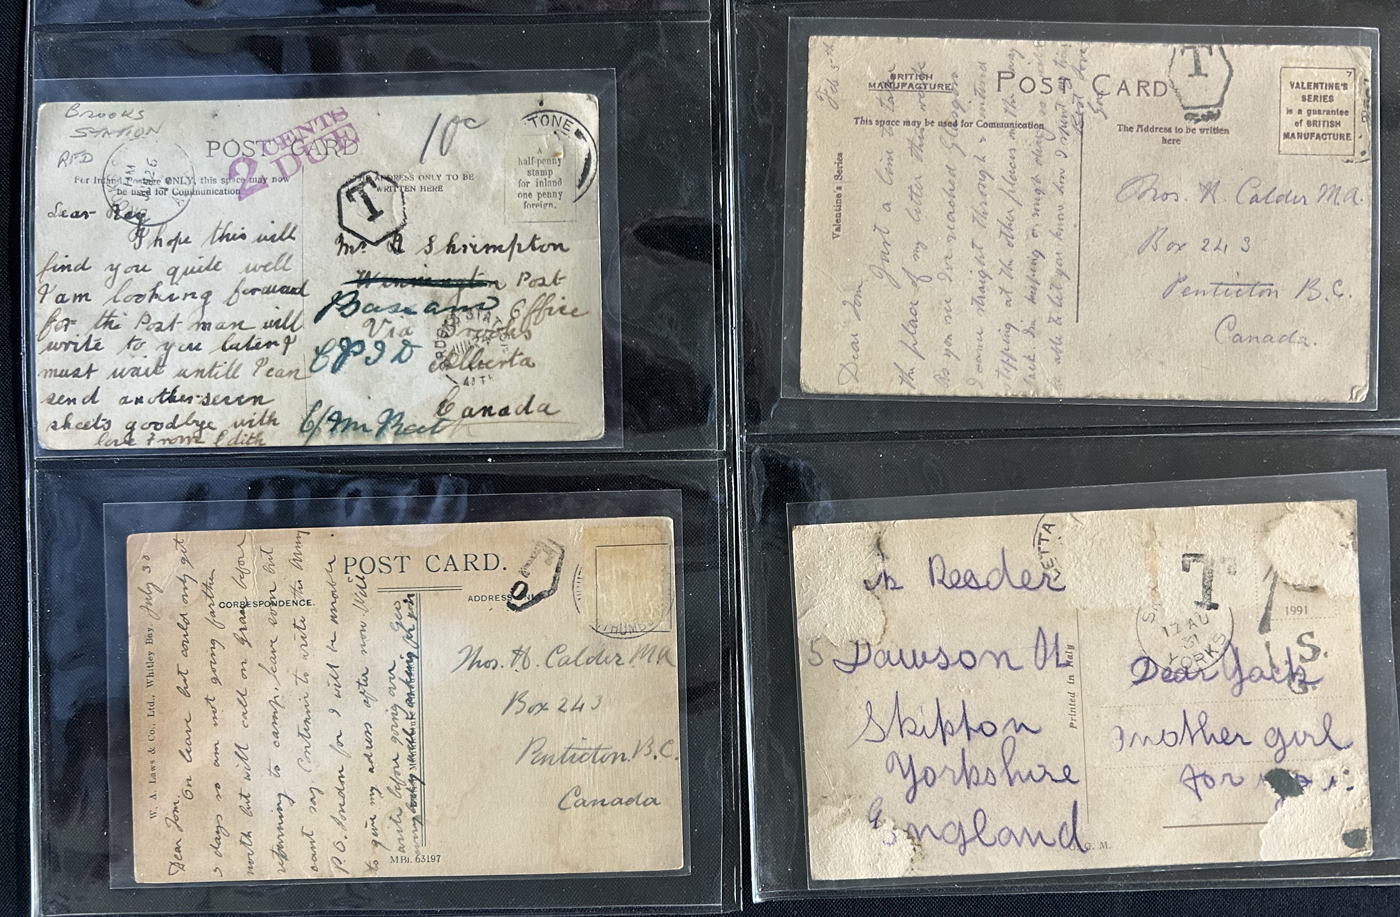 Brooks
STATION
RPD
POST CARD
2 CENTS
DUE
10c
T
TONE
A
half-penny
stamp
for inland
one penny
foreign.
For Inland Postage ONLY, this space may now
be used for Communication
ADDRESS ONLY TO BE
WRITTEN HERE
Dear Reg
I hope this will
find you quite well
I am looking forward
for the Post man will
write to you later &
must wait untill I can
send another
sheets goodbye with
love From Edith
Mr R Shrimpton
Post
Bassano Office
Via Brooks
Alberta
Canada
BRITISH
MANUFACTURE
POST CARD
T
7
VALENTINE'S
SERIES
is a guarantee
of BRITISH
MANUFACTURE
This space may be used for Communication
The Address to be written
here
Valentine's Series
Feb 5th
Dear Tom
Just a line to take
the place of my letter this week
As you see I've reached Glasgow
I came straight through &
at the other places on the way
able to let you know how I spent my
Best love
Thos. H. Calder M.A.
Box 243
Penticton B.C.
Canada.
POST CARD.
CORRESPONDENCE.
ADDRESS
W. A. Laws & Co., Ltd., Whitley Bay
July 30
Dear Tom.
On leave but could only get
5 days so am not going farther
north but will call on Grace before
returning to camp. leave soon but
cant say. Continue to write the Army
P.O. London for I will be unable
to give my adress after now. Will
write before going
MBi. 63197
Thos. H. Calder MA
Box 243
Penticton B.C.
Canada
VETTA
T
1991
S.
17 AU
51
YORKS
Reader
5 Dawson
Skipton
Yorkshire
England
Printed in Italy
Dear Jack
Another girl
for you: